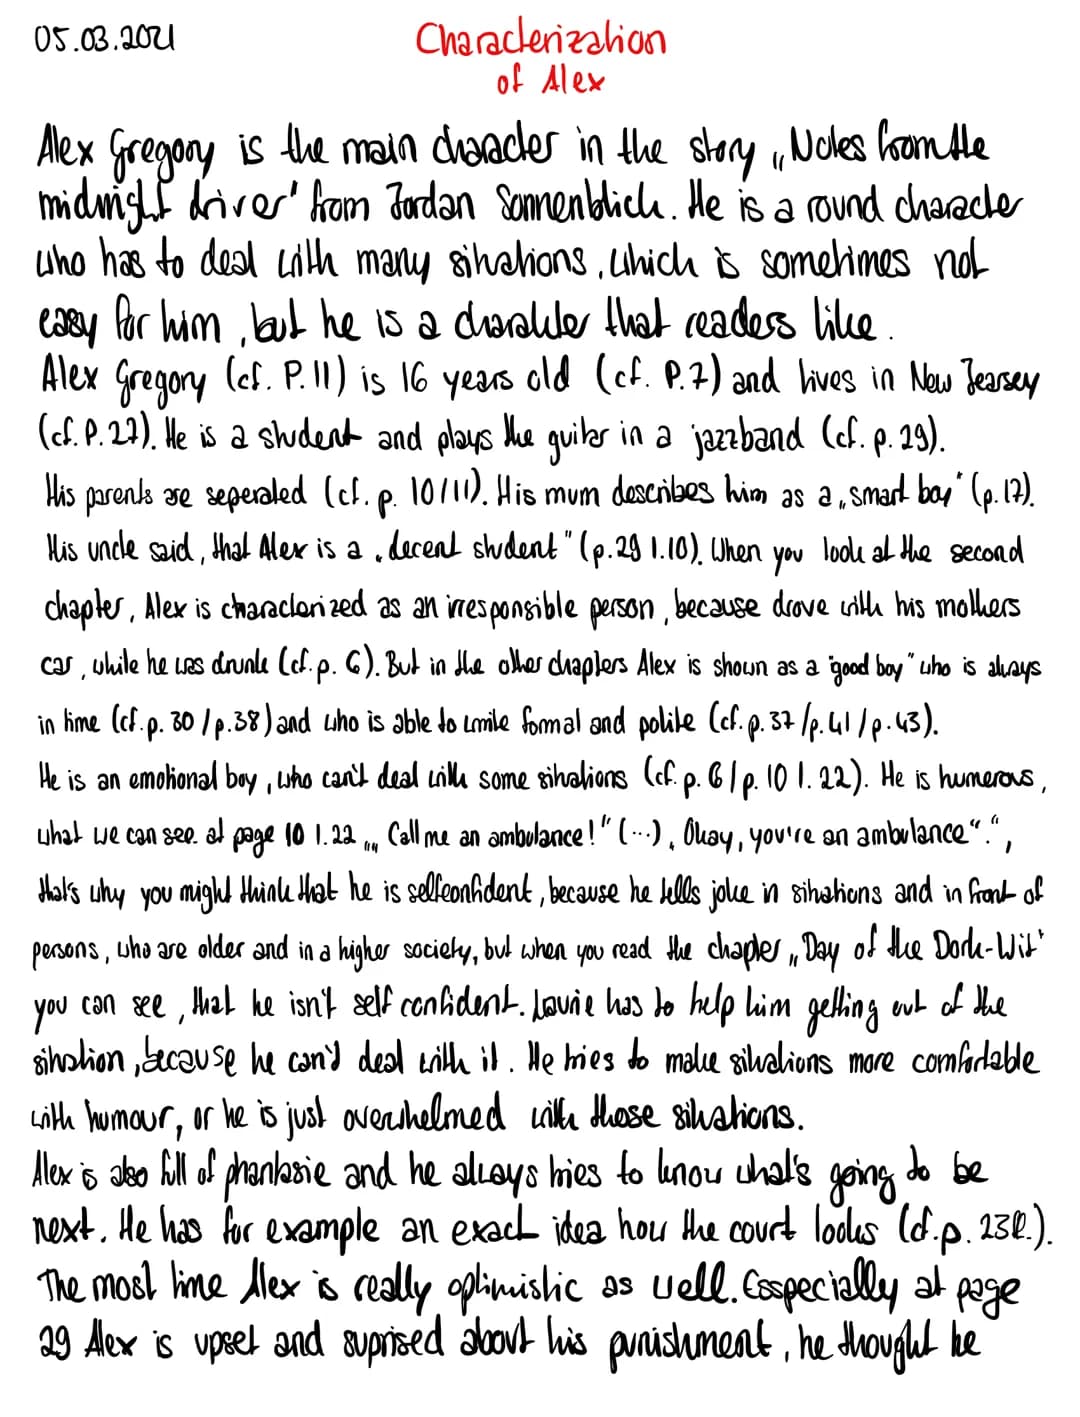 05.03.2021
Characterization
of Alex
Alex Gregory is the main character in the story „Notes from the
midnight driver" from Jordan Sonnenblick. He is a round character
who has to deal with many situations, which is sometimes not
easy for him, but he is a charakter that readers like.
Alex Gregory (cf. P. 11) is 16 years old (cf. P.7) and lives in New Jearsey
(cf. P. 27). He is a student and plays the guitar in a jazzband (cf. p. 29).
His parents are seperated (cf. p. 10/11). His mum describes him as a „smart boy" (p. 17).
His uncle said, that Alex is a „decent student" (p.29 l.10). When you look at the second
chapter, Alex is characterized as an irresponsible person, because drove with his mothers
car, while he was drunk (cf. p. 6). But in the other chapters Alex is shown as a "good boy" who is always
in time (cf. p. 30 / p.38) and who is able to write formal and polite (cf. p. 37 / p. 41 / p. 43).
He is an emotional boy, who can't deal with some situations (cf. p. 6 / p. 10 l. 22). He is humerous,
what we can see at page 10 l.22 „„ Call me an ambulance!" (...) „ Okay, you're an ambulance".",
that's why you might think that he is selfconfident, because he tells joke in situations and in front of
persons, who are older and in a higher society, but when you read the chapter „Day of the Dork-Wit"
you can see, that he isn't self confident. Laurie has to help him getting out of the
situation, because he can't deal with it. He tries to make situations more comfortable
with humour, or he is just overwhelmed with those situations.
Alex is also full of phantasie and he always tries to know what's going to be
next. He has for example an exact idea how the court looks (cf. p. 23ff.).
The most time Alex is really optimistic as well. Esspecially at page
29 Alex is upset and suprised about his punishment, he thought he